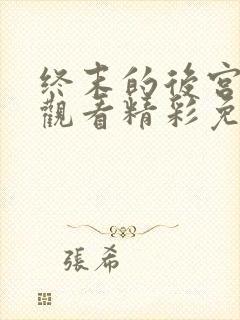 終末的後宮
觀看精彩免
張希